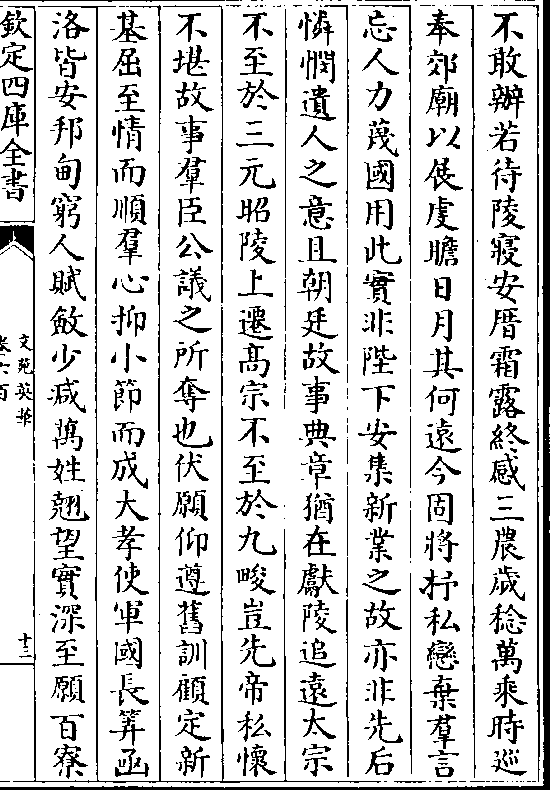 不敢辦若待陵寢安厝霜露終感三農歲稔萬乘時巡
奉郊廟以展虔瞻日月其何遠今固將抒私戀棄羣言
忘人力蔑國用此實非陛下安集新業之故亦非先后
憐憫遺人之意且朝廷故事典章猶在獻陵追遠太宗
不至於三元昭陵上遷髙宗不至於九畯豈先帝私懷
不堪故事羣臣公議之所奪也伏願仰遵舊訓顧定新
基屈至情而順羣心抑小節而成大孝使軍國長筭函
洛皆安邦甸窮人賦斂少減萬姓翹望實深至願百寮
欽定四庫全書
文苑英華
卷六百
十二